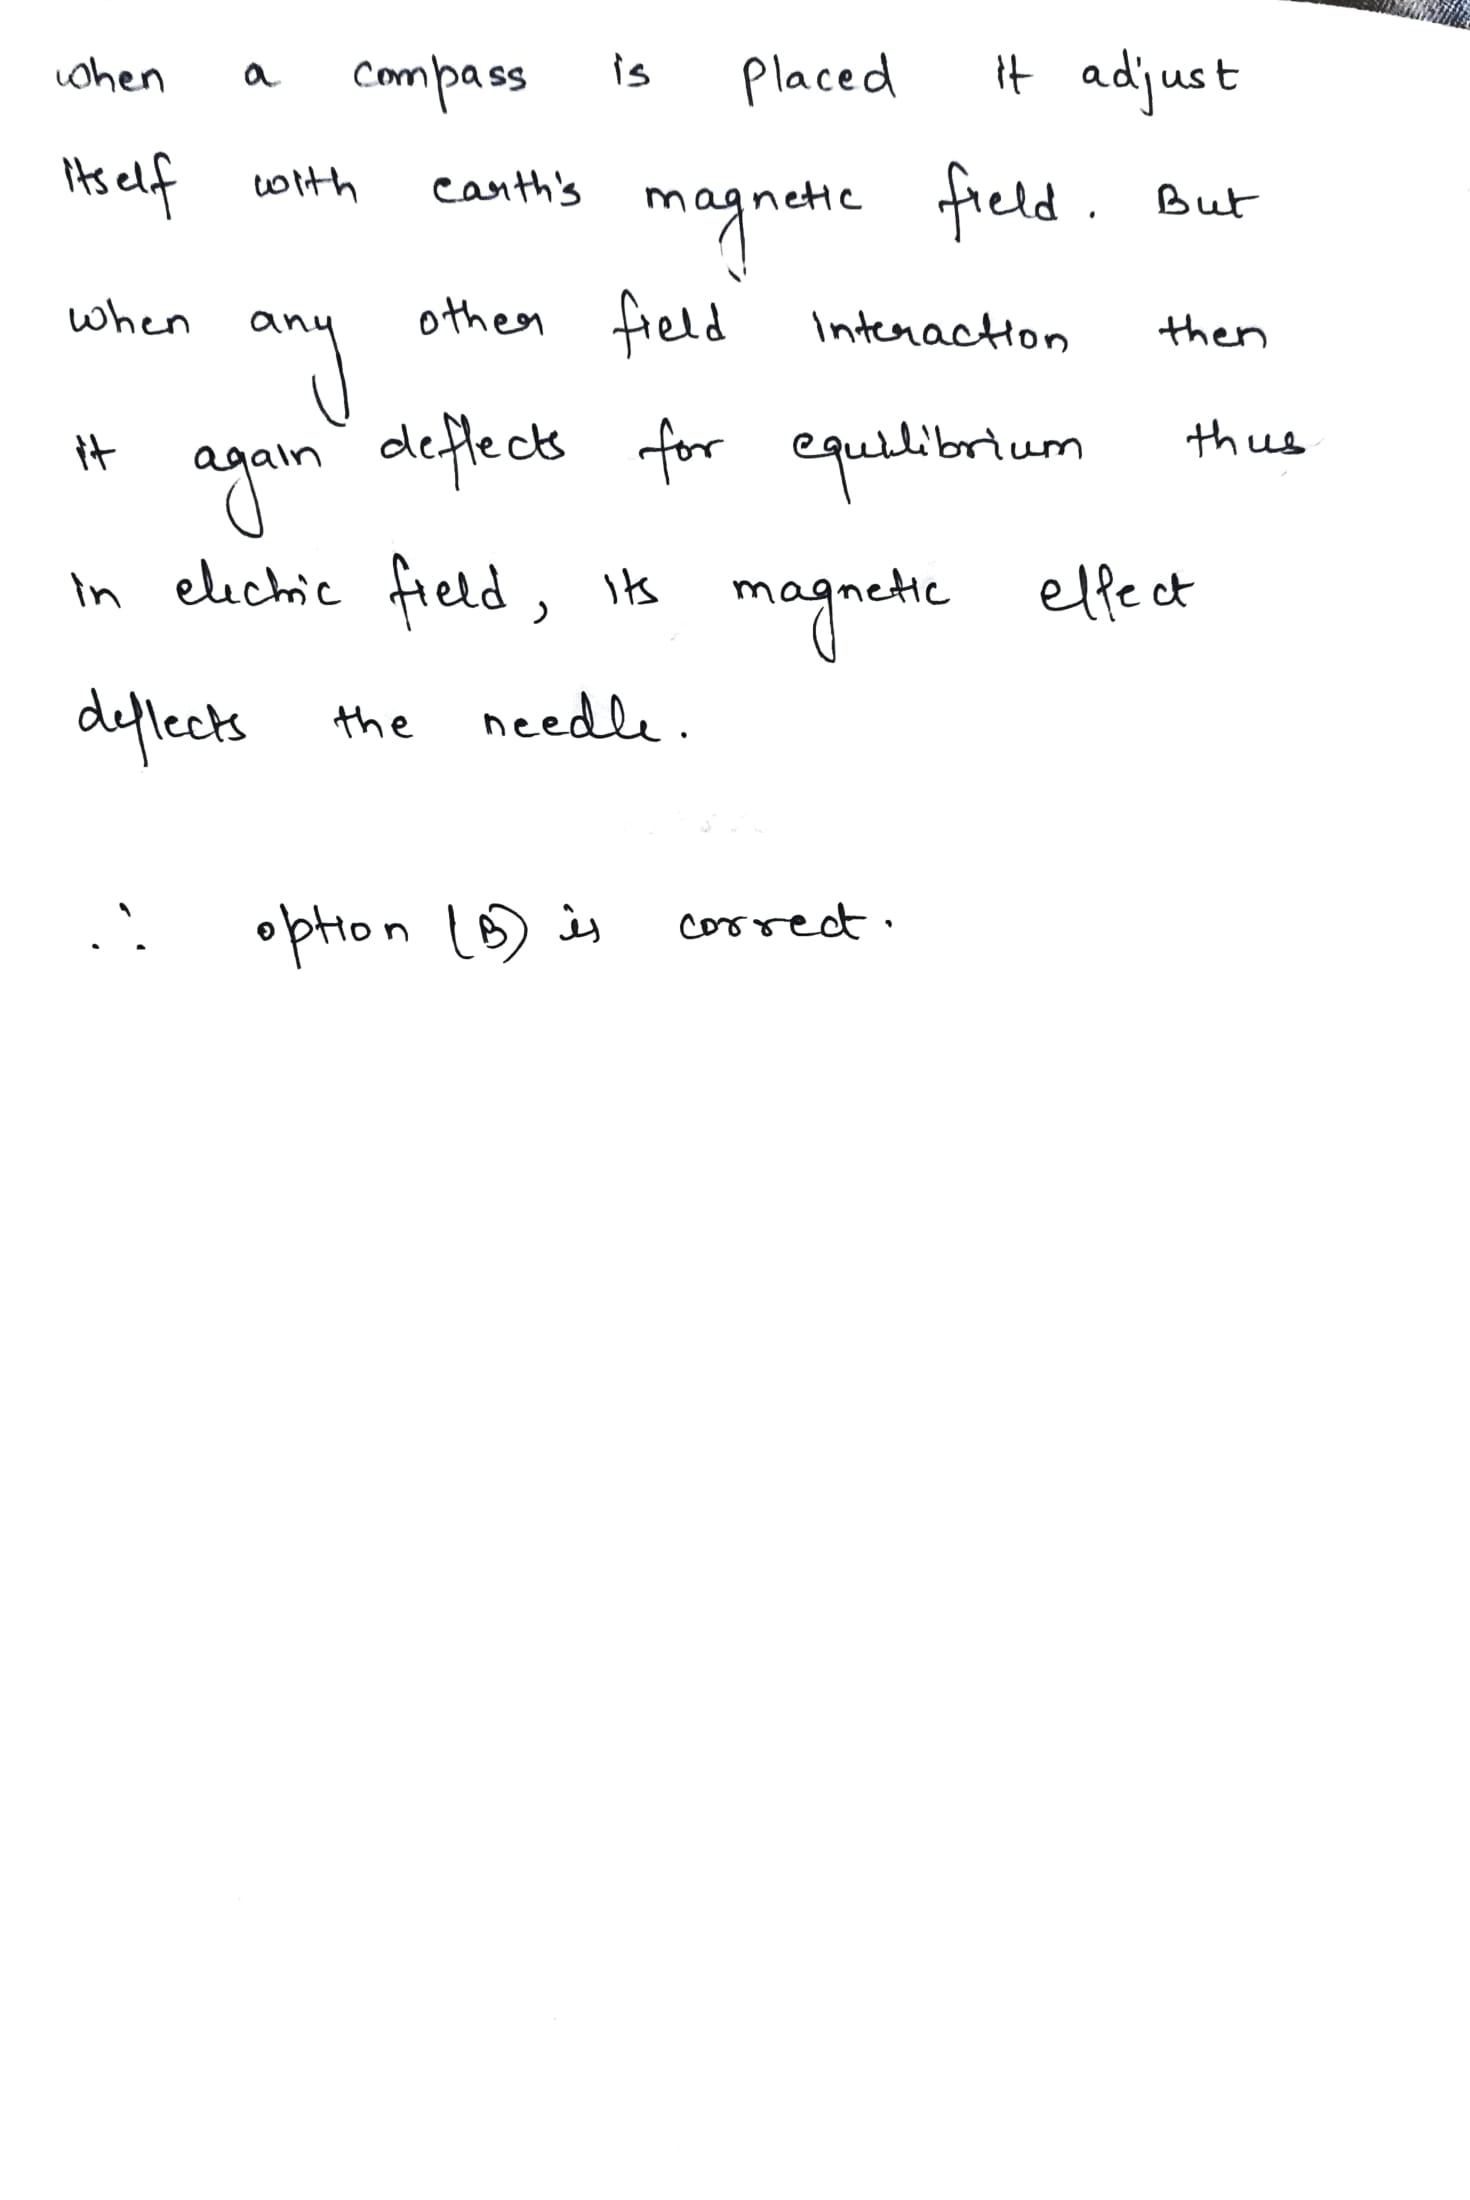 when a compass is placed it adjust
itself with earth's magnetic field. But
when any other field interaction then
it again deflects for equilibrium thus
in electric field, its magnetic effect
deflects the needle.
∴ option (B) is correct.